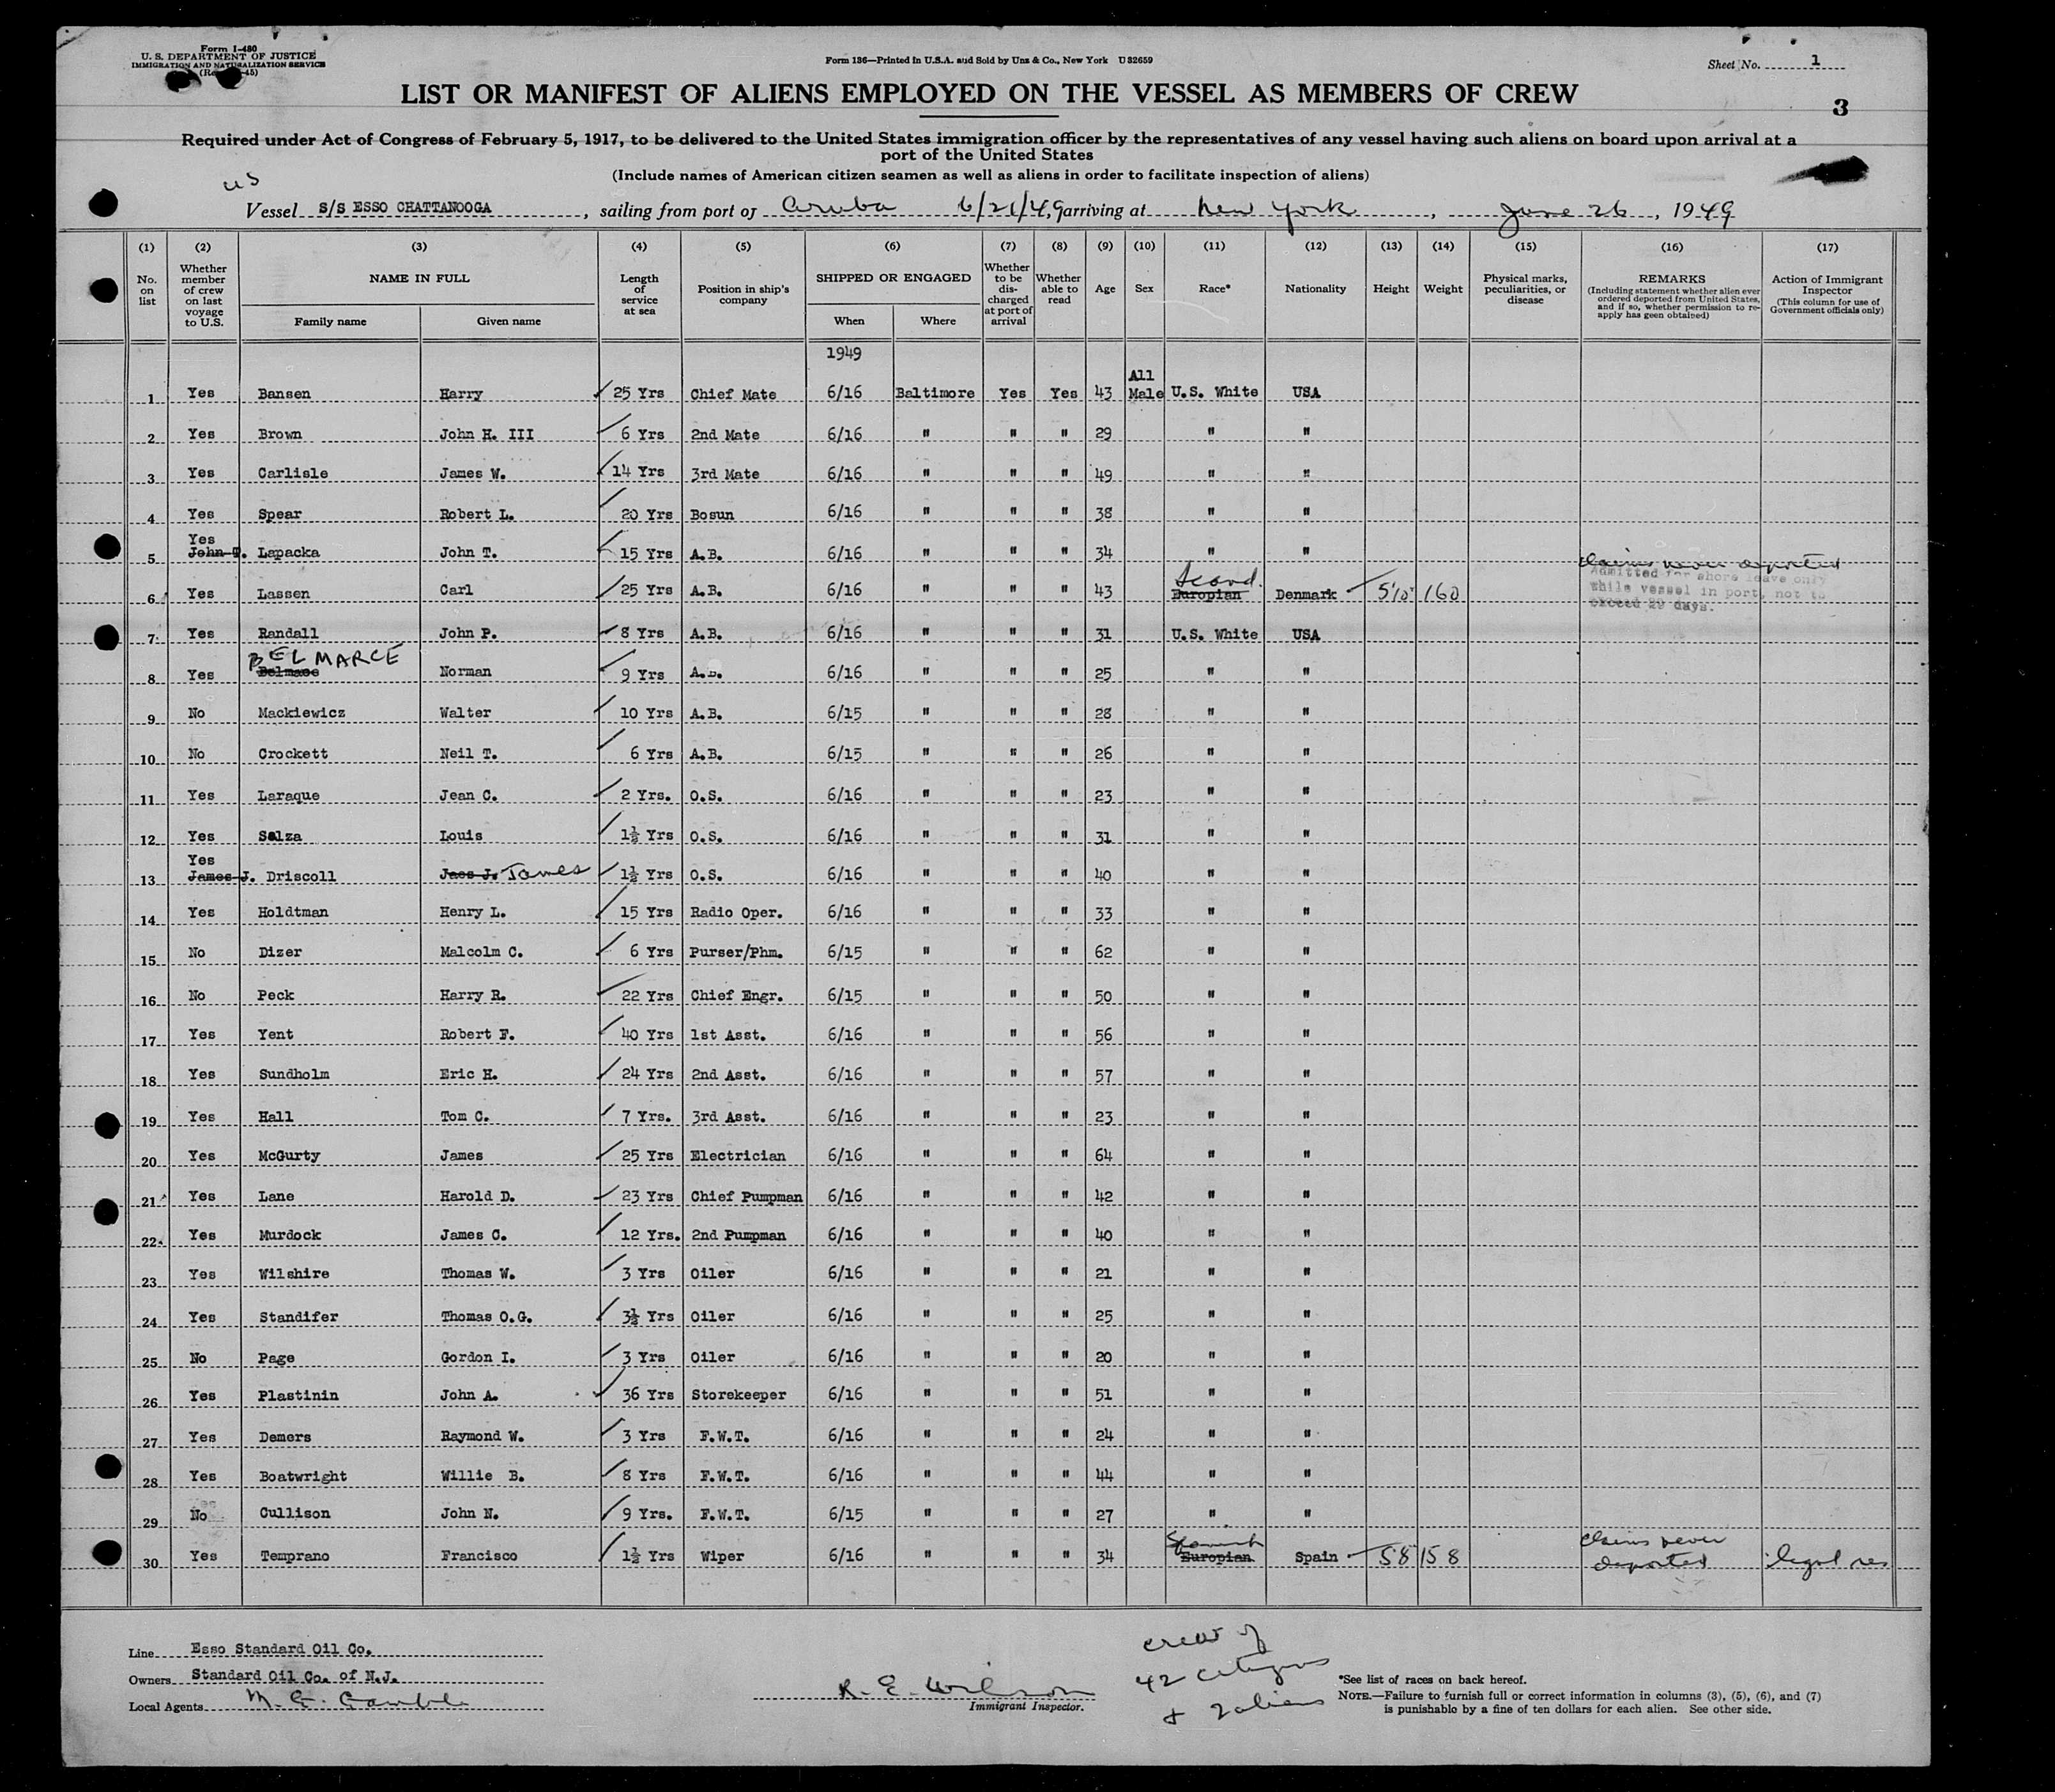 Form I-480
U. S. DEPARTMENT OF JUSTICE
IMMIGRATION AND NATURALIZATION SERVICE
Form 136—Printed in U.S.A. and Sold by Unz & Co., New York U 32659
Sheet No. 1
LIST OR MANIFEST OF ALIENS EMPLOYED ON THE VESSEL AS MEMBERS OF CREW
3
Required under Act of Congress of February 5, 1917, to be delivered to the United States immigration officer by the representatives of any vessel having such aliens on board upon arrival at a
port of the United States
(Include names of American citizen seamen as well as aliens in order to facilitate inspection of aliens)
US
Vessel S/S ESSO CHATTANOOGA, sailing from port of Aruba 6/21/49, arriving at New York, June 26, 1949
(1) (2) (3) (4) (5) (6) (7) (8) (9) (10) (11) (12) (13) (14) (15) (16) (17)
No. on list
Whether member of crew on last voyage to U.S.
NAME IN FULL
Family name Given name
Length of service at sea
Position in ship's company
SHIPPED OR ENGAGED
When Where
Whether to be discharged at port of arrival
Whether able to read
Age
Sex
Race*
Nationality
Height
Weight
Physical marks, peculiarities, or disease
REMARKS
(Including statement whether alien ever ordered deported from United States, and if so, whether permission to re-apply has geen obtained)
Action of Immigrant Inspector
(This column for use of Government officials only)
1949
1 Yes Bansen Harry 25 Yrs Chief Mate 6/16 Baltimore Yes Yes 43 All Male U.S. White USA
2 Yes Brown John H. III 6 Yrs 2nd Mate 6/16 " " " 29 " "
3 Yes Carlisle James W. 14 Yrs 3rd Mate 6/16 " " " 49 " "
4 Yes Spear Robert L. 20 Yrs Bosun 6/16 " " " 38 " "
5 Yes John T. Lapacka John T. 15 Yrs A.B. 6/16 " " " 34 " "
6 Yes Lassen Carl 25 Yrs A.B. 6/16 " " " 43 Scand. Europian Denmark 5'10" 160 claims never deported
Admitted for shore leave only
while vessel in port, not to
exceed 29 days.
7 Yes Randall John P. 8 Yrs A.B. 6/16 " " " 31 U.S. White USA
8 Yes BELMARCE Belmace Norman 9 Yrs A.B. 6/16 " " " 25 " "
9 No Mackiewicz Walter 10 Yrs A.B. 6/15 " " " 28 " "
10 No Crockett Neil T. 6 Yrs A.B. 6/15 " " " 26 " "
11 Yes Laraque Jean C. 2 Yrs. O.S. 6/16 " " " 23 " "
12 Yes Salza Louis 1½ Yrs O.S. 6/16 " " " 31 " "
13 Yes James J. Driscoll Jaes J. James 1½ Yrs O.S. 6/16 " " " 40 " "
14 Yes Holdtman Henry L. 15 Yrs Radio Oper. 6/16 " " " 33 " "
15 No Dizer Malcolm C. 6 Yrs Purser/Phm. 6/15 " " " 62 " "
16 No Peck Harry R. 22 Yrs Chief Engr. 6/15 " " " 50 " "
17 Yes Yent Robert F. 40 Yrs 1st Asst. 6/16 " " " 56 " "
18 Yes Sundholm Eric H. 24 Yrs 2nd Asst. 6/16 " " " 57 " "
19 Yes Hall Tom C. 7 Yrs. 3rd Asst. 6/16 " " " 23 " "
20 Yes McGurty James 25 Yrs Electrician 6/16 " " " 64 " "
21 Yes Lane Harold D. 23 Yrs Chief Pumpman 6/16 " " " 42 " "
22 Yes Murdock James C. 12 Yrs. 2nd Pumpman 6/16 " " " 40 " "
23 Yes Wilshire Thomas W. 3 Yrs Oiler 6/16 " " " 21 " "
24 Yes Standifer Thomas O.G. 3½ Yrs Oiler 6/16 " " " 25 " "
25 No Page Gordon I. 3 Yrs Oiler 6/16 " " " 20 " "
26 Yes Plastinin John A. 36 Yrs Storekeeper 6/16 " " " 51 " "
27 Yes Demers Raymond W. 3 Yrs F.W.T. 6/16 " " " 24 " "
28 Yes Boatwright Willie B. 8 Yrs F.W.T. 6/16 " " " 44 " "
29 No Cullison John N. 9 Yrs. F.W.T. 6/15 " " " 27 " "
30 Yes Temprano Francisco 1½ Yrs Wiper 6/16 " " " 34 Spanish Europian Spain 5'8 158 claims never deported legal res
Line Esso Standard Oil Co.
Owners Standard Oil Co. of N.J.
Local Agents M. E. Gamble
R. E. Wilson
Immigrant Inspector.
crew of
42 citizens
+ 2 aliens
*See list of races on back hereof.
NOTE.—Failure to furnish full or correct information in columns (3), (5), (6), and (7)
is punishable by a fine of ten dollars for each alien. See other side.